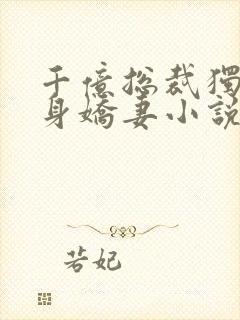 千億总裁獨
身嬌妻小說
若妃